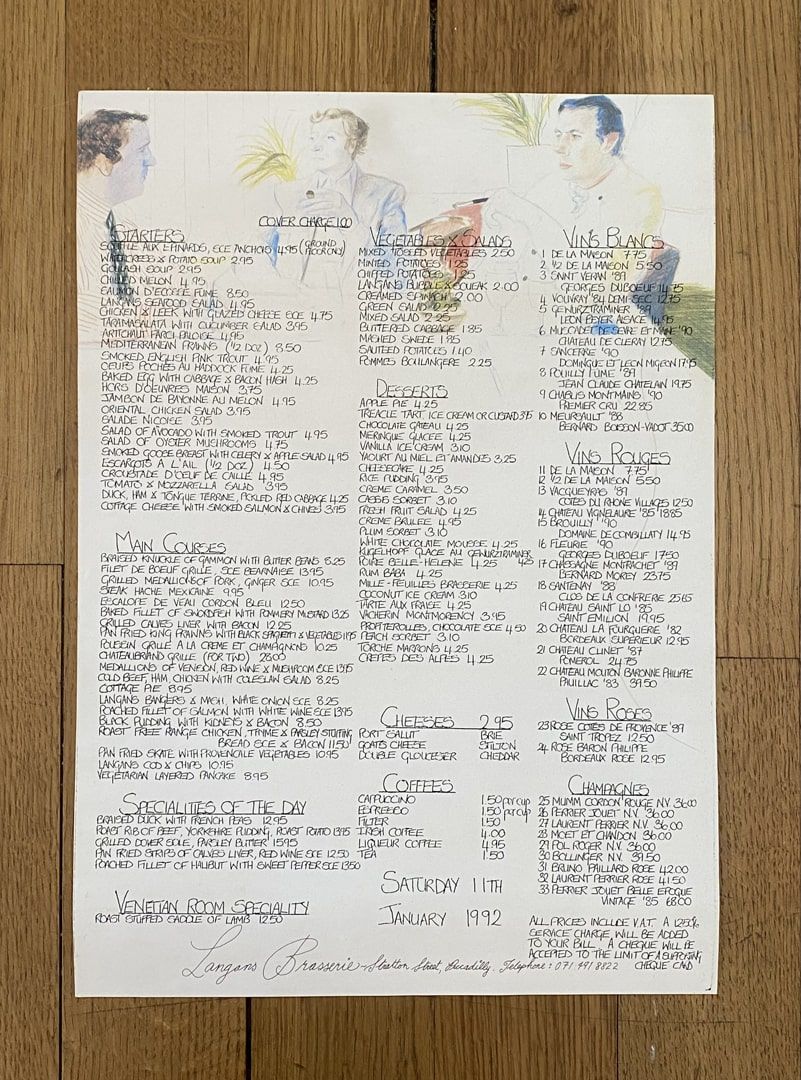 COVER CHARGE 1.00
STARTERS
SOUFFLE AUX EPINARDS, SCE ANCHOIS 4.95 (GROUND FLOOR ONLY)
WATERCRESS & POTATO SOUP 2.95
GOULASH SOUP 2.95
CHILLED MELON 4.95
SAUMON D'ECOSSE FUME 8.50
LANGANS SEAFOOD SALAD 4.95
CHICKEN & LEEK WITH GLAZED CHEESE SCE 4.75
TARAMASALATA WITH CUCUMBER SALAD 3.95
ARTICHAUT FARCI BALOISE 4.95
MEDITERRANEAN PRAWNS (1/2 DOZ) 8.50
SMOKED ENGLISH PINK TROUT 4.95
OEUFS POCHES AU HADDOCK FUME 4.25
BAKED EGG WITH CABBAGE & BACON HASH 4.25
HORS D'OEUVRES MAISON 3.75
JAMBON DE BAYONNE AU MELON 4.95
ORIENTAL CHICKEN SALAD 3.95
SALADE NICOISE 3.95
SALAD OF AVOCADO WITH SMOKED TROUT 4.95
SALAD OF OYSTER MUSHROOMS 4.75
SMOKED GOOSE BREAST WITH CELERY & APPLE SALAD 4.95
ESCARGOTS A L'AIL (1/2 DOZ) 4.50
CROUSTADE D'OEUF DE CAILLE 4.95
TOMATO & MOZZARELLA SALAD 3.95
DUCK, HAM & TONGUE TERRINE, PICKLED RED CABBAGE 4.25
COTTAGE CHEESE WITH SMOKED SALMON & CHIVES 3.95
MAIN COURSES
BRAISED KNUCKLE OF GAMMON WITH BUTTER BEANS 8.25
FILET DE BOEUF GRILLE, SCE BEARNAISE 13.95
GRILLED MEDALLIONS OF PORK, GINGER SCE 10.95
STEAK HACHE MEXICAINE 9.95
ESCALOPE DE VEAU CORDON BLEU 12.50
BAKED FILLET OF SWORDFISH WITH POMMERY MUSTARD 13.25
GRILLED CALVES LIVER WITH BACON 12.25
PAN FRIED KING PRAWNS WITH BLACK SPAGHETTI & VEGETABLES 11.95
POUSSIN GRILLÉ A LA CREME ET CHAMPAGNONS 10.25
CHATEAUBRIAND GRILLE (FOR TWO) 28.00
MEDALLIONS OF VENISON, RED WINE & MUSHROOM SCE 13.95
COLD BEEF, HAM, CHICKEN WITH COLESLAW SALAD 8.25
COTTAGE PIE 8.95
LANGANS BANGERS & MASH, WHITE ONION SCE 8.25
POACHED FILLET OF SALMON WITH WHITE WINE SCE 13.95
BLACK PUDDING WITH KIDNEYS & BACON 8.50
ROAST FREE RANGE CHICKEN, THYME & PARSLEY STUFFING
BREAD SCE & BACON 11.50
PAN FRIED SKATE WITH PROVENCALE VEGETABLES 10.95
LANGANS COD & CHIPS 10.95
VEGETARIAN LAYERED PANCAKE 8.95
SPECIALITIES OF THE DAY
BRAISED DUCK WITH FRENCH PEAS 12.95
ROAST RIB OF BEEF, YORKSHIRE PUDDING, ROAST POTATO 13.95
GRILLED DOVER SOLE, PARSLEY BUTTER 15.95
PAN FRIED STRIPS OF CALVES LIVER, RED WINE SCE 12.50
POACHED FILLET OF HALIBUT WITH SWEET PEPPER SCE 13.50
VENETIAN ROOM SPECIALITY
ROAST STUFFED SADDLE OF LAMB 12.50
VEGETABLES & SALADS
MIXED TOSSED VEGETABLES 2.50
MINTED POTATOES 1.25
CHIPPED POTATOES 1.25
LANGANS BUBBLE & SQUEAK 2.00
CREAMED SPINACH 2.00
GREEN SALAD 2.25
MIXED SALAD 2.25
BUTTERED CABBAGE 1.85
MASHED SWEDE 1.85
SAUTEED POTATOES 1.40
POMMES BOULANGERE 2.25
DESSERTS
APPLE PIE 4.25
TREACLE TART, ICE CREAM OR CUSTARD 3.95
CHOCOLATE GATEAU 4.25
MERINGUE GLACEE 4.25
VANILLA ICE CREAM 3.10
YAOURT AU MIEL ET AMANDES 3.25
CHEESECAKE 4.25
RICE PUDDING 3.95
CREME CARAMEL 3.50
CASSIS SORBET 3.10
FRESH FRUIT SALAD 4.25
CREME BRULEE 4.95
PLUM SORBET 3.10
WHITE CHOCOLATE MOUSSE 4.25
KUGELHOPF GLACE AU GENURZTRAMINER 4.25
POIRE BELLE-HELENE 4.25
RUM BABA 4.25
MILLE-FEUILLES BRASSERIE 4.25
COCONUT ICE CREAM 3.10
TARTE AUX FRAISE 4.25
VACHERIN MONTMORENCY 3.95
PROFITEROLLES, CHOCOLATE SCE 4.50
PEACH SORBET 3.10
TORCHE MARRONS 4.25
CREPES DES ALPES 4.25
CHEESES 2.95
PORT SALUT BRIE
GOATS CHEESE STILTON
DOUBLE GLOUCESTER CHEDDAR
COFFEES
CAPPUCCINO 1.50 per cup
ESPRESSO 1.50 per cup
FILTER 1.50
IRISH COFFEE 4.00
LIQUEUR COFFEE 4.95
TEA 1.50
SATURDAY 11TH
JANUARY 1992
VINS BLANCS
1 DE LA MAISON 7.75
2 1/2 DE LA MAISON 5.50
3 SAINT VERAN '89
GEORGES DUBOEUF 14.75
4 VOUVRAY '84 DEMI SEC 12.75
5 GENURZTRAMINER '89
LEON BEYER ALSACE 14.95
6 MUSCADET DE SEVRE ET MAINE '90
CHATEAU DE CLERAY 12.75
7 SANCERRE '90
DOMINIQUE ET LEON MIGEON 17.45
8 POUILLY FUME '89
JEAN CLAUDE CHATELAIN 19.75
9 CHABLIS MONTMAINS '90
PREMIER CRU 22.85
10 MEURSAULT '88
BERNARD BOISSON-VADOT 35.00
VINS ROUGES
11 DE LA MAISON 7.75
12 1/2 DE LA MAISON 5.50
13 VACQUEYRAS '89
COTES DU RHONE VILLAGES 12.50
14 CHATEAU VIGNELAURE '85 18.85
15 BROUILLY '90
DOMAINE DE COMBILLATY 14.95
16 FLEURIE '90
GEORGES DUBOEUF 17.50
17 CHASSAGNE MONTRACHET '89
BERNARD MOREY 23.75
18 SANTENAY '88
CLOS DE LA CONFRERIE 25.65
19 CHATEAU SAINT LO '85
SAINT EMILION 19.95
20 CHATEAU LA FOURQUERIE '82
BORDEAUX SUPERIEUR 12.95
21 CHATEAU CLINET '87
POMEROL 24.75
22 CHATEAU MOUTON BARONNE PHILIPPE
PAUILLAC '83 39.50
VINS ROSES
23 ROSE COTES DE PROVENCE '89
SAINT TROPEZ 12.50
24 ROSE BARON PHILIPPE
BORDEAUX ROSE 12.95
CHAMPAGNES
25 MUMM CORDON ROUGE N.V. 36.00
26 PERRIER JOUET N.V. 36.00
27 LAURENT PERRIER N.V. 36.00
28 MOET ET CHANDON 36.00
29 POL ROGER N.V. 36.00
30 BOLLINGER N.V. 39.50
31 BRUNO PAILLARD ROSE 42.00
32 LAURENT PERRIER ROSE 41.50
33 PERRIER JOUET BELLE EPOQUE
VINTAGE '85 68.00
ALL PRICES INCLUDE V.A.T. A 12.50%
SERVICE CHARGE WILL BE ADDED
TO YOUR BILL. A CHEQUE WILL BE
ACCEPTED TO THE LIMIT OF A SUPPORTING
CHEQUE CARD
Langans Brasserie - Stratton Street, Piccadilly. Telephone: 071 491 8822